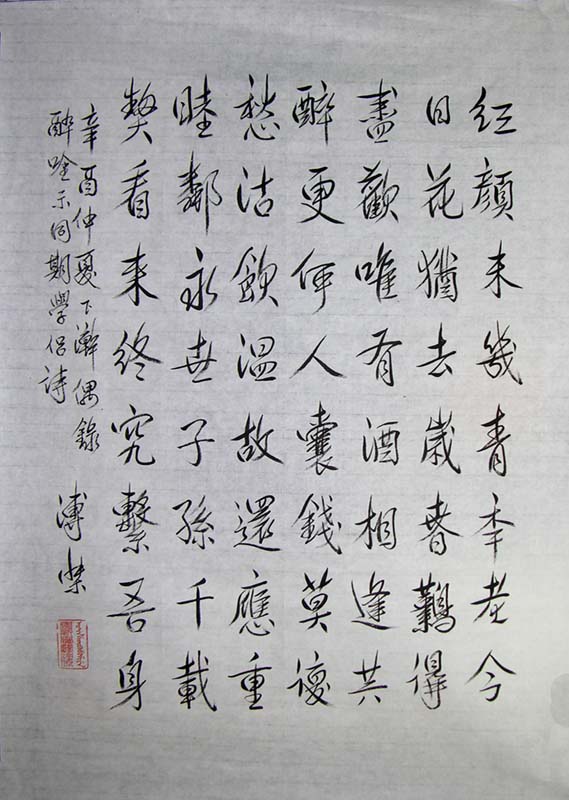 红顏未幾青年老今
日花猶去歲春難得
盡歡唯有酒相逢共
醉更何人囊錢莫復
愁沽飲溫故還應重
睦鄰永世子孫千載
契看来終究繫吾身
辛酉仲夏下澣偶錄
醉唫示同期學侶詩
溥傑